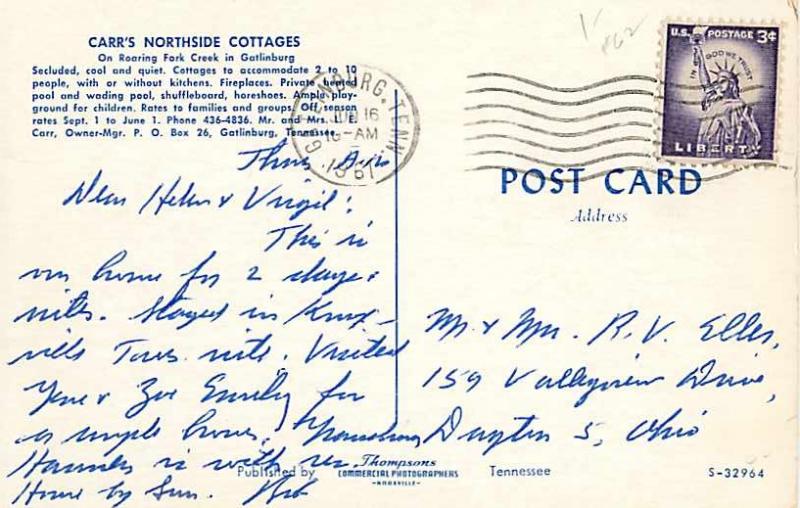 CARR'S NORTHSIDE COTTAGES
On Roaring Fork Creek in Gatlinburg
Secluded, cool and quiet. Cottages to accommodate 2 to 10
people, with or without kitchens. Fireplaces. Private heated
pool and wading pool, shuffleboard, horeshoes. Ample play-
ground for children. Rates to families and groups. Off season
rates Sept. 1 to June 1. Phone 436-4836. Mr. and Mrs. J. E.
Carr, Owner-Mgr. P. O. Box 26, Gatlinburg, Tennessee.
GATLINBURG, TENN.
JUN 16
AM
U.S. POSTAGE 3¢
IN GOD WE TRUST
LIBERTY
POST CARD
Address
Thurs
Dear Helen & Virgil:
This is
our home for 2 days &
nites. Stayed in Knox-
ville Tues. nite. Visited
& Emily for
a couple hours.
is with us.
Home by Sun.
Mr & Mrs. R. V. Elles,
159 Valleyview Drive,
Dayton 5, Ohio
Published by Thompsons
COMMERCIAL PHOTOGRAPHERS
KNOXVILLE
Tennessee
S-32964